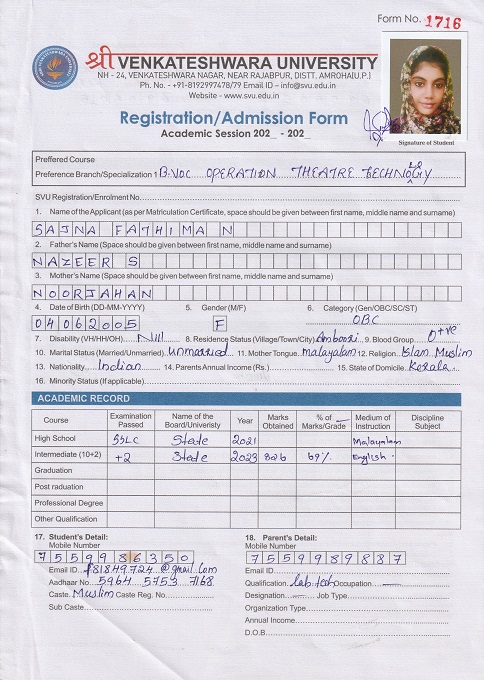 Form No. 1716
श्री VENKATESHWARA UNIVERSITY
NH - 24, VENKATESHWARA NAGAR, NEAR RAJABPUR, DISTT. AMROHA(U.P.)
Ph. No. - +91-8192997478/79 Email ID – info@svu.edu.in
Website - www.svu.edu.in
Registration/Admission Form
Academic Session 202_ - 202_
Signature of Student
Preffered Course
Preference Branch/Specialization 1 B.VOC OPERATION THEATRE TECHNOLOGY
SVU Registration/Enrolment No.
1. Name of the Applicant (as per Matriculation Certificate, space should be given between first name, middle name and surname)
SAJNA FATHIMA N
2. Father's Name (Space should be given between first name, middle name and surname)
NAZEER S
3. Mother's Name (Space should be given between first name, middle name and surname)
NOORJAHAN
4. Date of Birth (DD-MM-YYYY) 5. Gender (M/F) 6. Category (Gen/OBC/SC/ST)
04062005 F OBC
7. Disability (VH/HH/OH) Nill 8. Residence Status (Village/Town/City) Amboori 9. Blood Group O+ve
10. Marital Status (Married/Unmarried) unmarried 11. Mother Tongue malayalam 12. Religion Islam Muslim
13. Nationality Indian 14. Parents Annual Income (Rs.) 15. State of Domicile Kerala
16. Minority Status (If applicable)
ACADEMIC RECORD
Course Examination Passed Name of the Board/Univeristy Year Marks Obtained % of Marks/Grade Medium of Instruction Discipline Subject
High School SSLC State 2021 Malayalam
Intermediate (10+2) +2 State 2023 826 69% English
Graduation
Post raduation
Professional Degree
Other Qualification
17. Student's Detail: 18. Parent's Detail:
Mobile Number Mobile Number
7559986350 7559989887
Email ID @gmail.com Email ID
Aadhaar No. 5964 5753 7168 Qualification Occupation
Caste Muslim Caste Reg. No. Designation Job Type
Sub Caste Organization Type
Annual Income
D.O.B